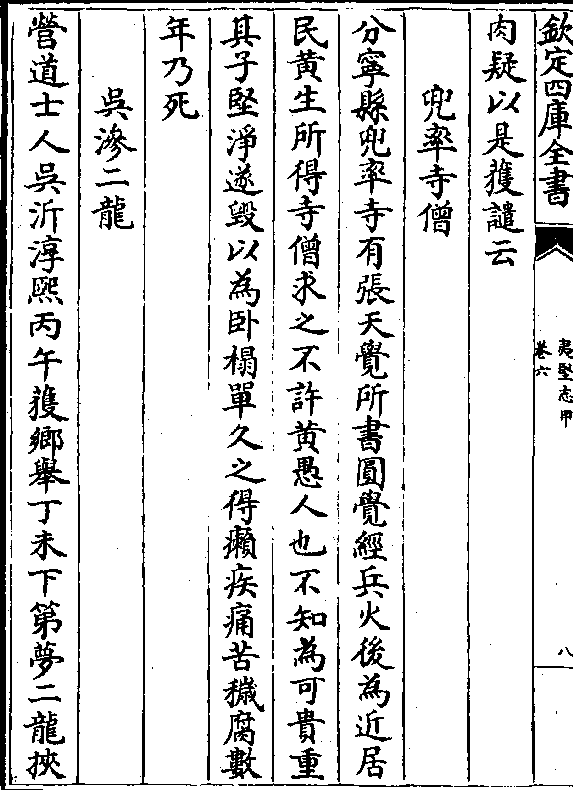 欽定四庫全書
夷堅志甲
卷六
八
肉疑以是獲譴云
兜率寺僧
分寧縣兜率寺有張天覺所書圓覺經兵火後為近居
民黄生所得寺僧求之不許黄愚人也不知為可貴重
其子堅淨遂毀以為卧榻單久之得癩疾痛苦穢腐數
年乃死
吳滲二龍
營道士人吳沂淳熙丙午獲鄉舉丁未下第夢二龍挾